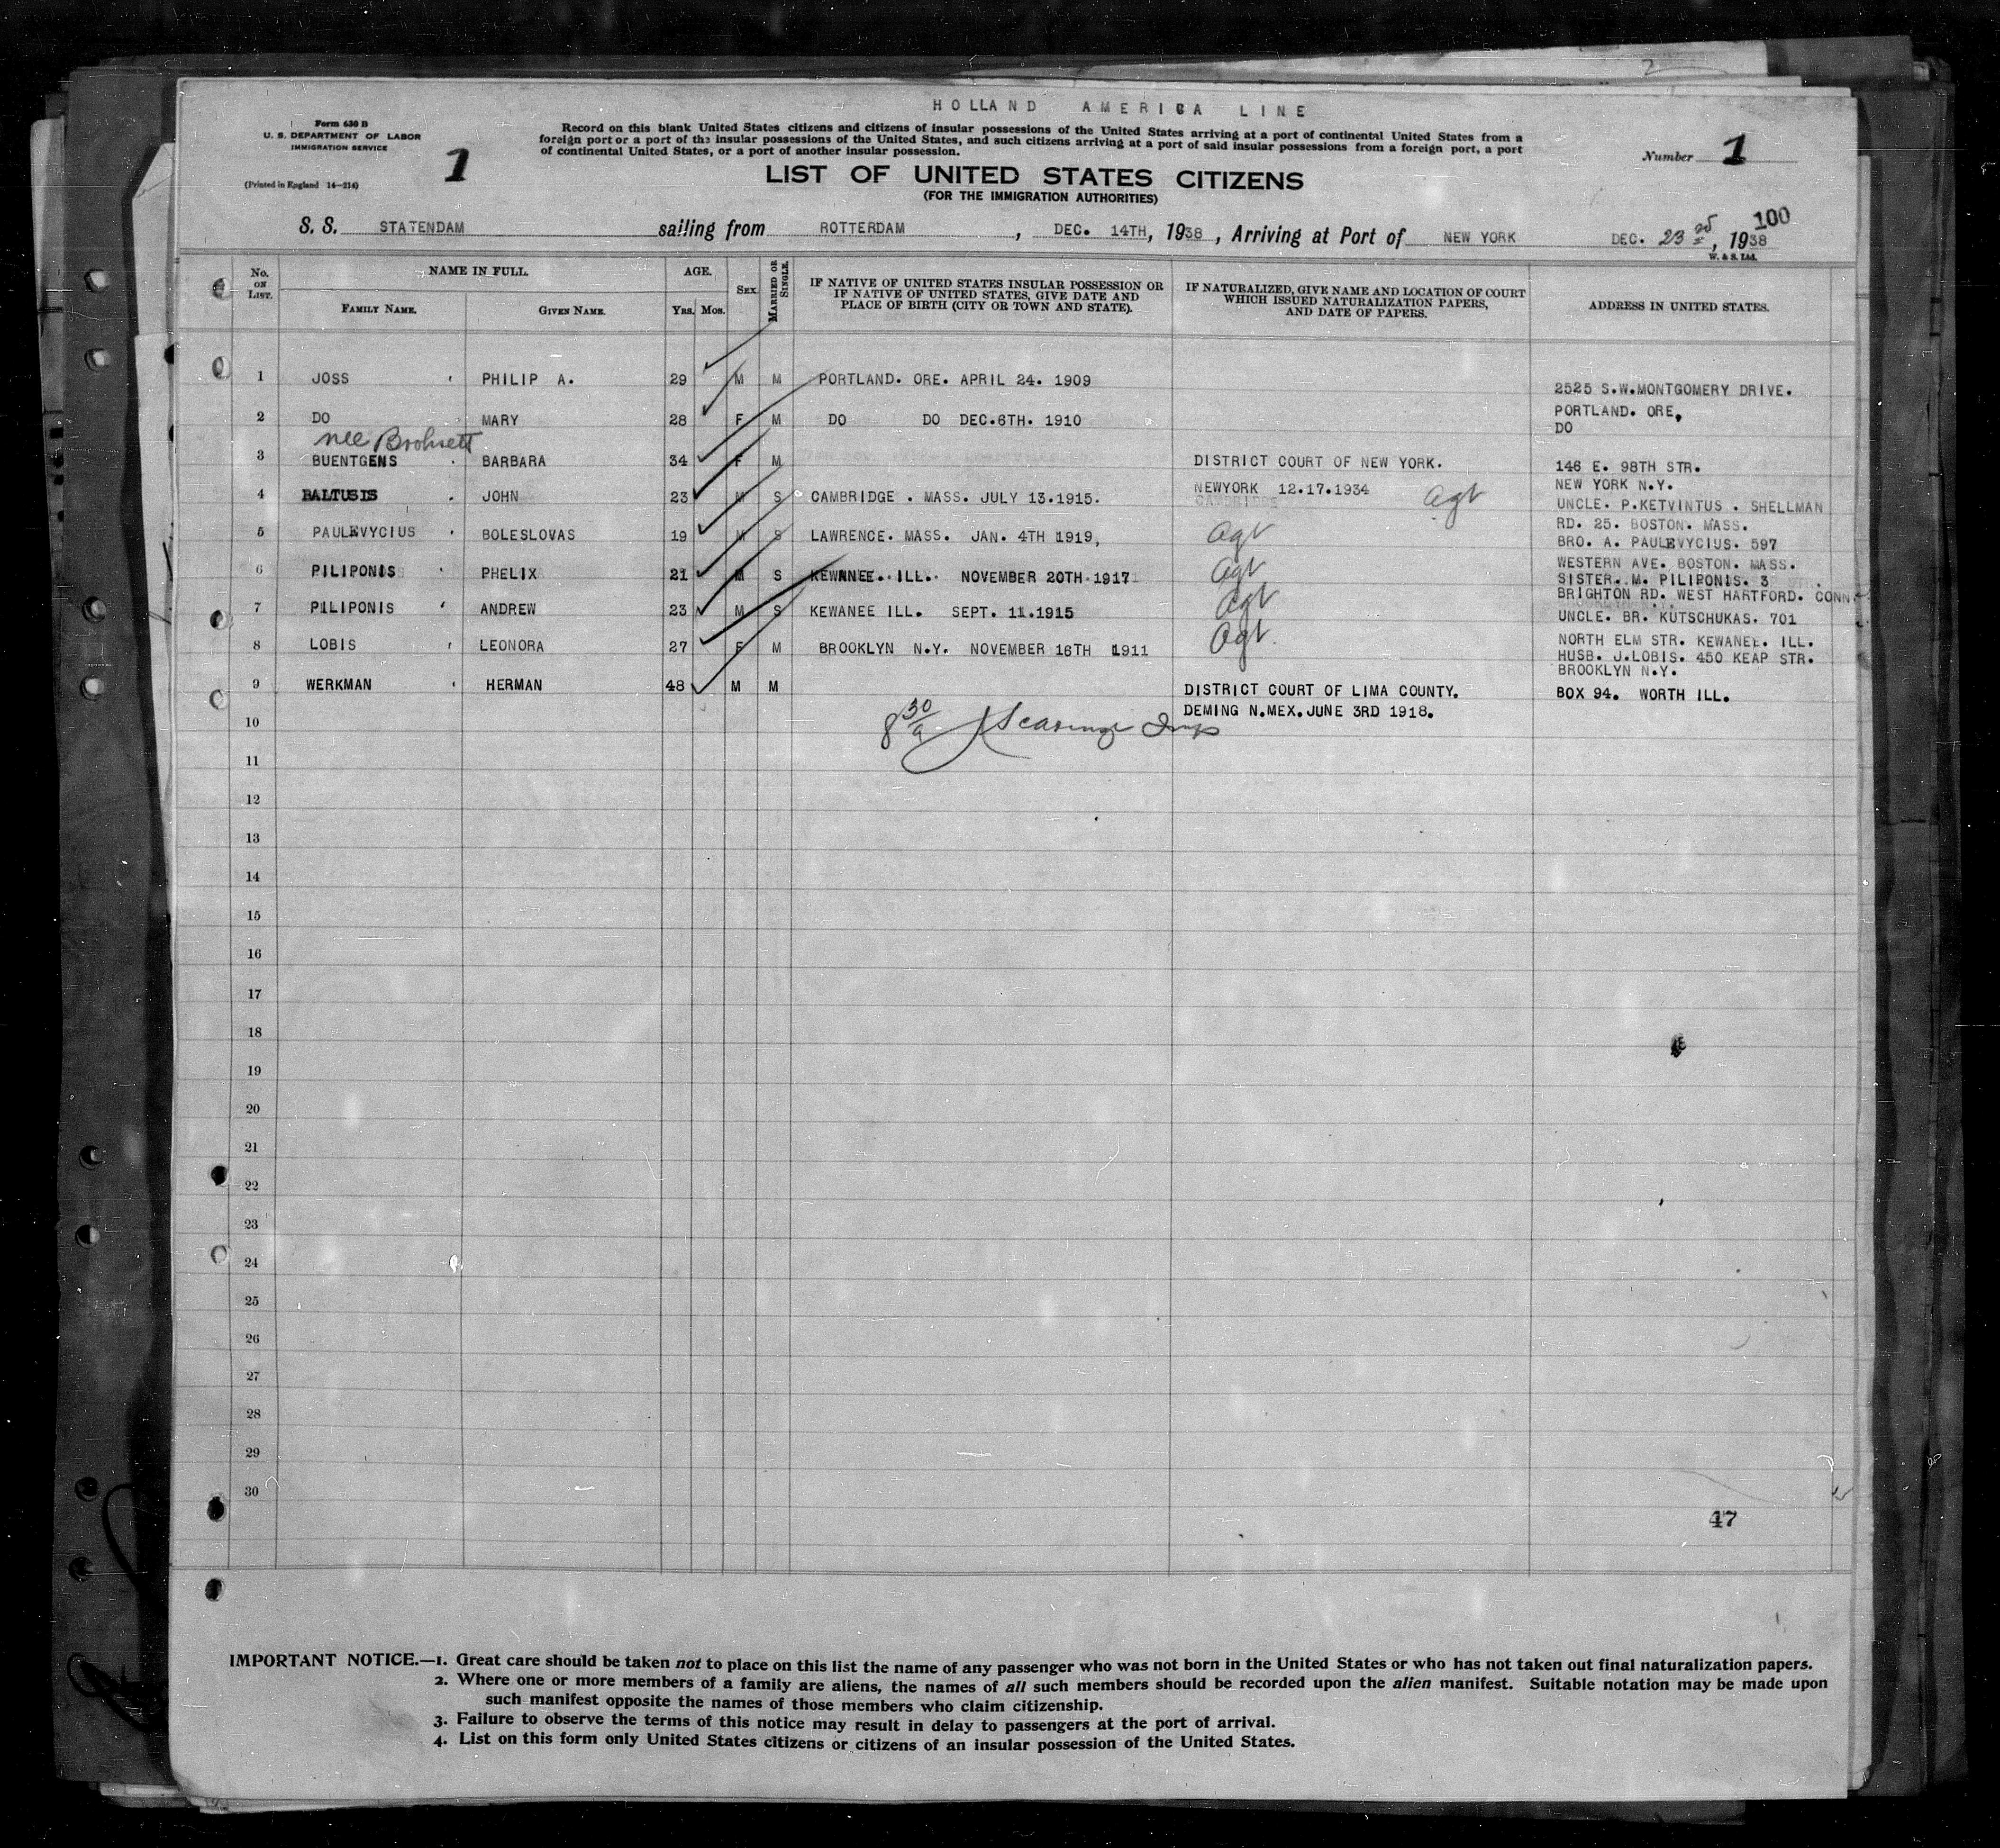 HOLLAND AMERICA LINE
Form 630 B
U. S. DEPARTMENT OF LABOR
IMMIGRATION SERVICE
(Printed in England 14—214)
1
Record on this blank United States citizens and citizens of insular possessions of the United States arriving at a port of continental United States from a
foreign port or a port of the insular possessions of the United States, and such citizens arriving at a port of said insular possessions from a foreign port, a port
of continental United States, or a port of another insular possession.
Number 1
LIST OF UNITED STATES CITIZENS
(FOR THE IMMIGRATION AUTHORITIES)
100
S. S. STATENDAM sailing from ROTTERDAM, DEC. 14TH, 1938, Arriving at Port of NEW YORK DEC. 23rd, 1938
W. & S. Ltd.
No. ON LIST. NAME IN FULL. FAMILY NAME. GIVEN NAME. AGE. YRS. MOS. SEX. MARRIED OR SINGLE.
IF NATIVE OF UNITED STATES INSULAR POSSESSION OR
IF NATIVE OF UNITED STATES, GIVE DATE AND
PLACE OF BIRTH (CITY OR TOWN AND STATE).
IF NATURALIZED, GIVE NAME AND LOCATION OF COURT
WHICH ISSUED NATURALIZATION PAPERS,
AND DATE OF PAPERS.
ADDRESS IN UNITED STATES.
1 JOSS PHILIP A. 29 M M PORTLAND. ORE. APRIL 24. 1909
2525 S.W.MONTGOMERY DRIVE.
PORTLAND. ORE.
2 DO MARY 28 F M DO DO DEC.6TH. 1910
DO
nee
3 BUENTGENS BARBARA 34 F M DISTRICT COURT OF NEW YORK.
146 E. 98TH STR.
NEW YORK N.Y.
NEWYORK 12.17.1934
4 BALTUSIS JOHN 23 M S CAMBRIDGE . MASS. JULY 13.1915. agt
UNCLE. P.KETVINTUS . SHELLMAN
RD. 25. BOSTON. MASS.
5 PAULEVYCIUS BOLESLOVAS 19 M S LAWRENCE. MASS. JAN. 4TH 1919, agt
BRO. A. PAULEVYCIUS. 597
WESTERN AVE. BOSTON. MASS.
6 PILIPONIS PHELIX 21 M S KEWANEE. ILL. NOVEMBER 20TH 1917 agt
SISTER. M. PILIPONIS. 3
BRIGHTON RD. WEST HARTFORD. CONN.
7 PILIPONIS ANDREW 23 M S KEWANEE ILL. SEPT. 11.1915 agt
UNCLE. BR. KUTSCHUKAS. 701
NORTH ELM STR. KEWANEE. ILL.
8 LOBIS LEONORA 27 F M BROOKLYN N.Y. NOVEMBER 16TH 1911 agt.
HUSB. J.LOBIS. 450 KEAP STR.
BROOKLYN N.Y.
9 WERKMAN HERMAN 48 M M DISTRICT COURT OF LIMA COUNTY. BOX 94. WORTH ILL.
DEMING N.MEX.JUNE 3RD 1918.
10
11
12
13
14
15
16
17
18
19
20
21
22
23
24
25
26
27
28
29
30
47
IMPORTANT NOTICE.—1. Great care should be taken not to place on this list the name of any passenger who was not born in the United States or who has not taken out final naturalization papers.
2. Where one or more members of a family are aliens, the names of all such members should be recorded upon the alien manifest. Suitable notation may be made upon
such manifest opposite the names of those members who claim citizenship.
3. Failure to observe the terms of this notice may result in delay to passengers at the port of arrival.
4. List on this form only United States citizens or citizens of an insular possession of the United States.